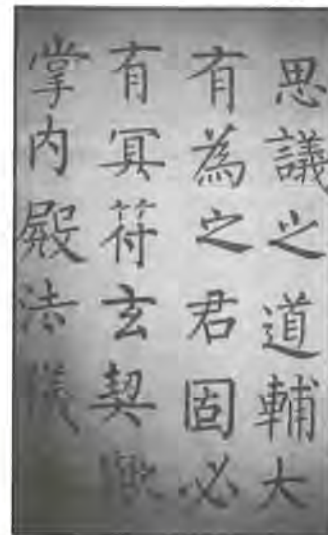 思議之道輔大
有為之君固必
有冥符玄契歟
掌内殿法儀